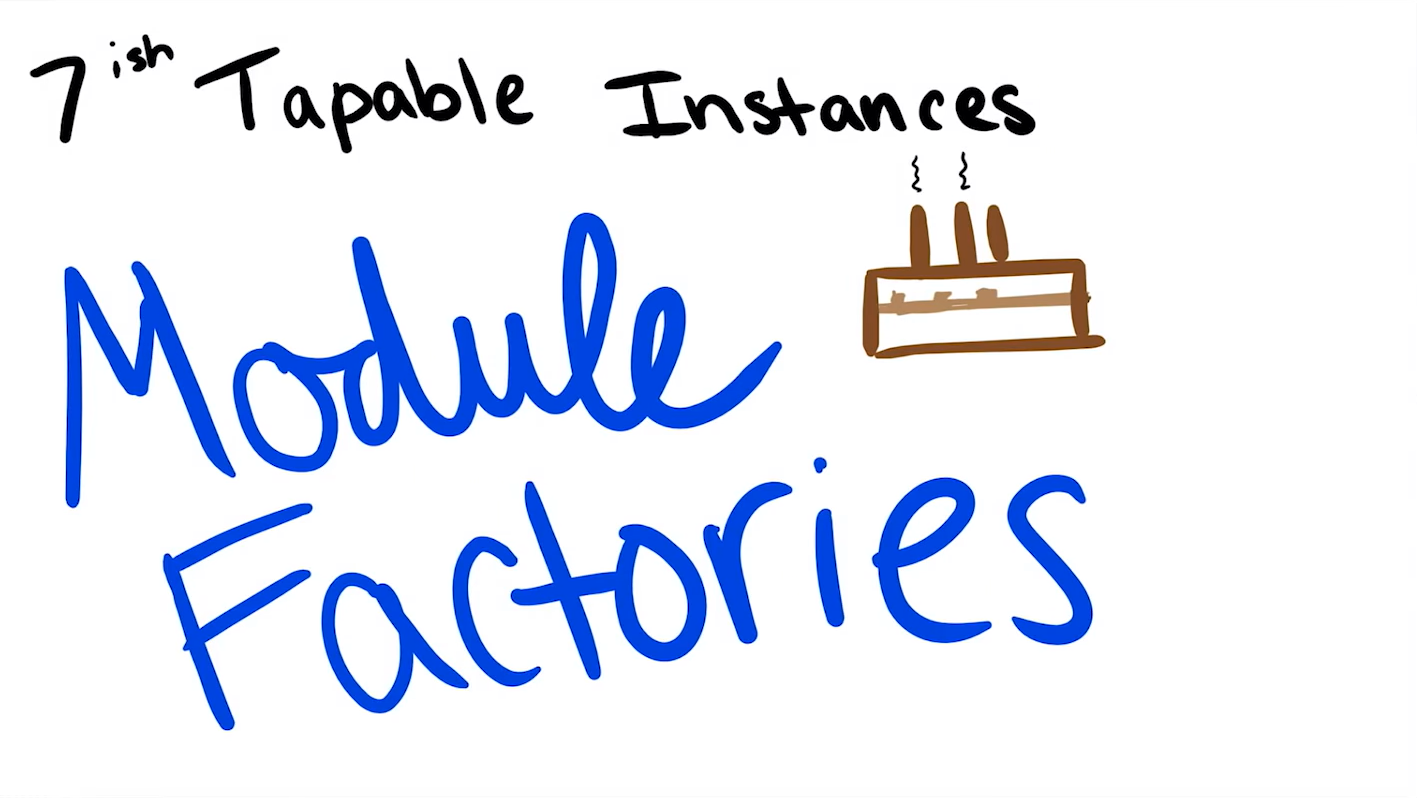 7ish Tapable Instances
Module
Factories